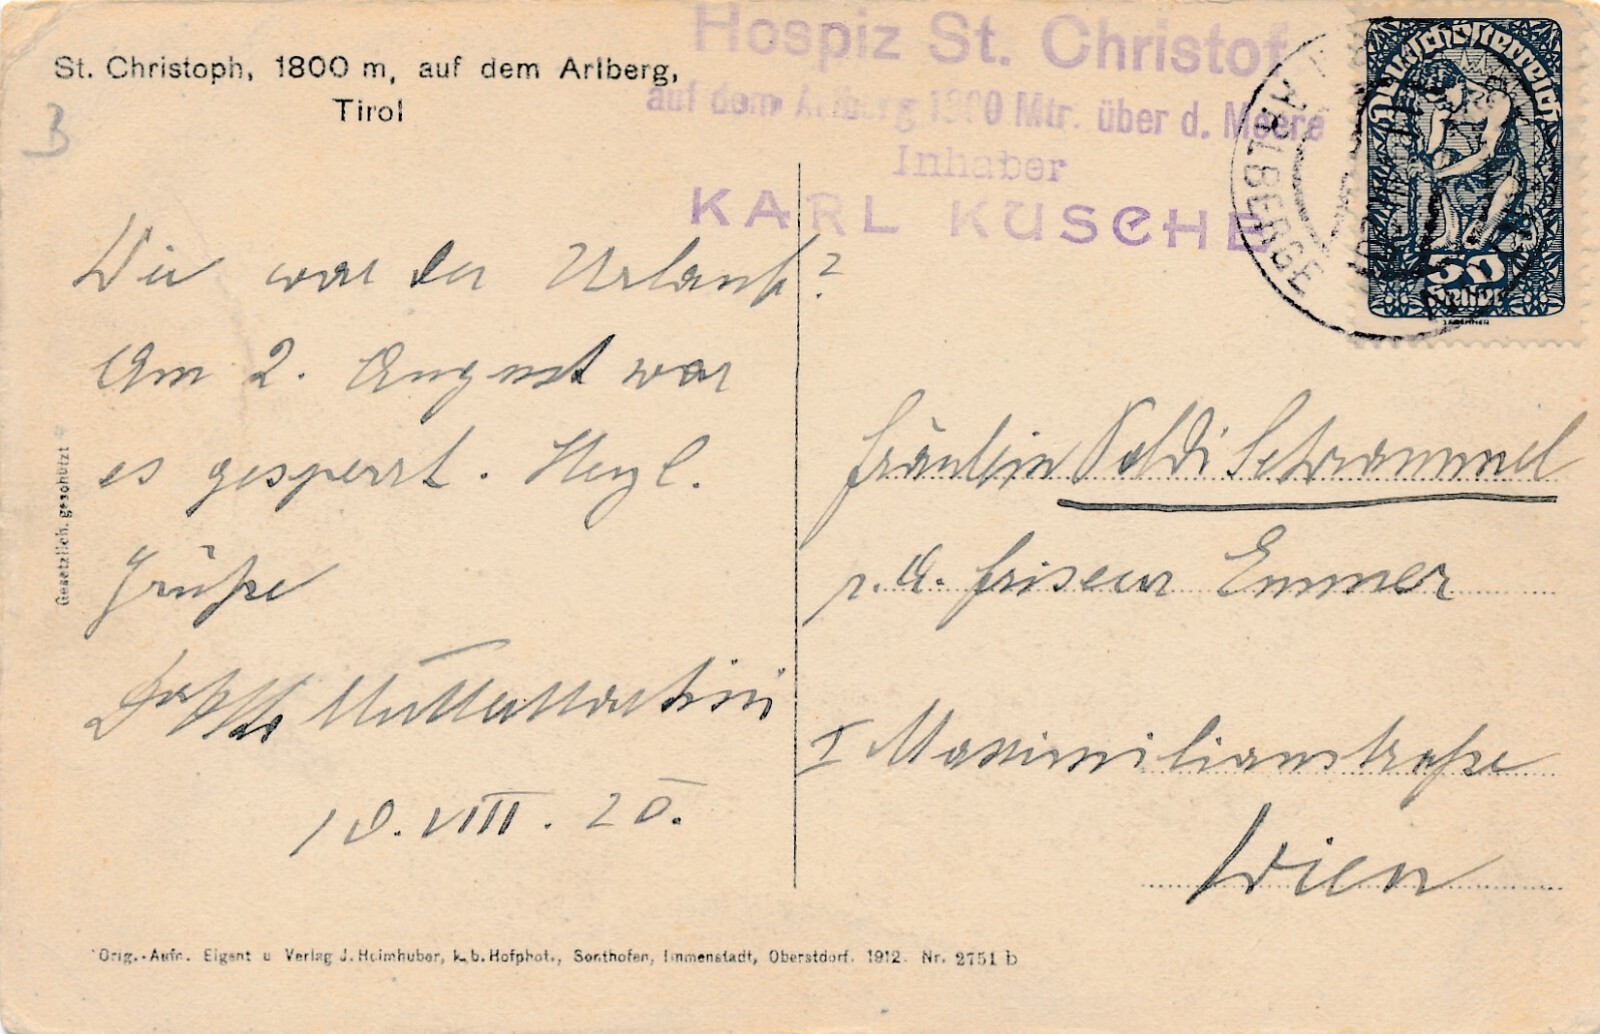 St. Christoph, 1800 m, auf dem Arlberg,
Tirol
Hospiz St. Christof
auf dem Arlberg 1800 Mtr. über d. Meere
Inhaber
KARL KUSCHE
ARLBERGE
Deutschösterreich
50
Heller
B
Wie war der Urlaub?
Am 2. August war
es gesperrt. Herzl.
Grüße
10. VIII. 20.
Fräulein Poldi Schrammel
p. A. Friseur Emmer
I Maximilianstraße
Wien
Gesetzlich. geschützt
Orig.-Aufn. Eigent u Verlag J. Heimhuber, k. b. Hofphot., Sonthofen, Immenstadt, Oberstdorf. 1912. Nr. 2751 b